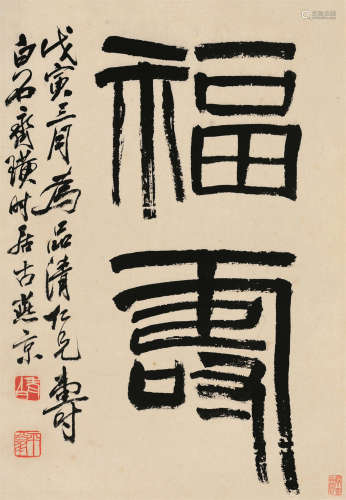 福壽
戊寅三月為品清仁兄壽
白石齊璜時居古燕京